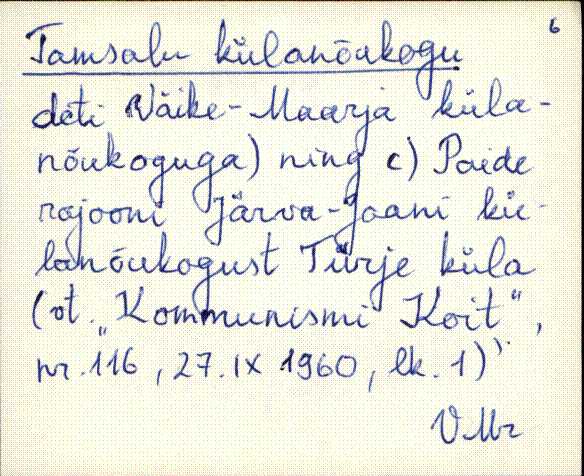 6
Tamsalu külanõukogu
deti Väike-Maarja küla-
nõukoguga) ning c) Paide
rajooni Järva-Jaani kü-
lanõukogust Türje küla
(vt. „Kommunismi Koit",
nr. 116, 27. IX 1960, lk. 1)
VMr